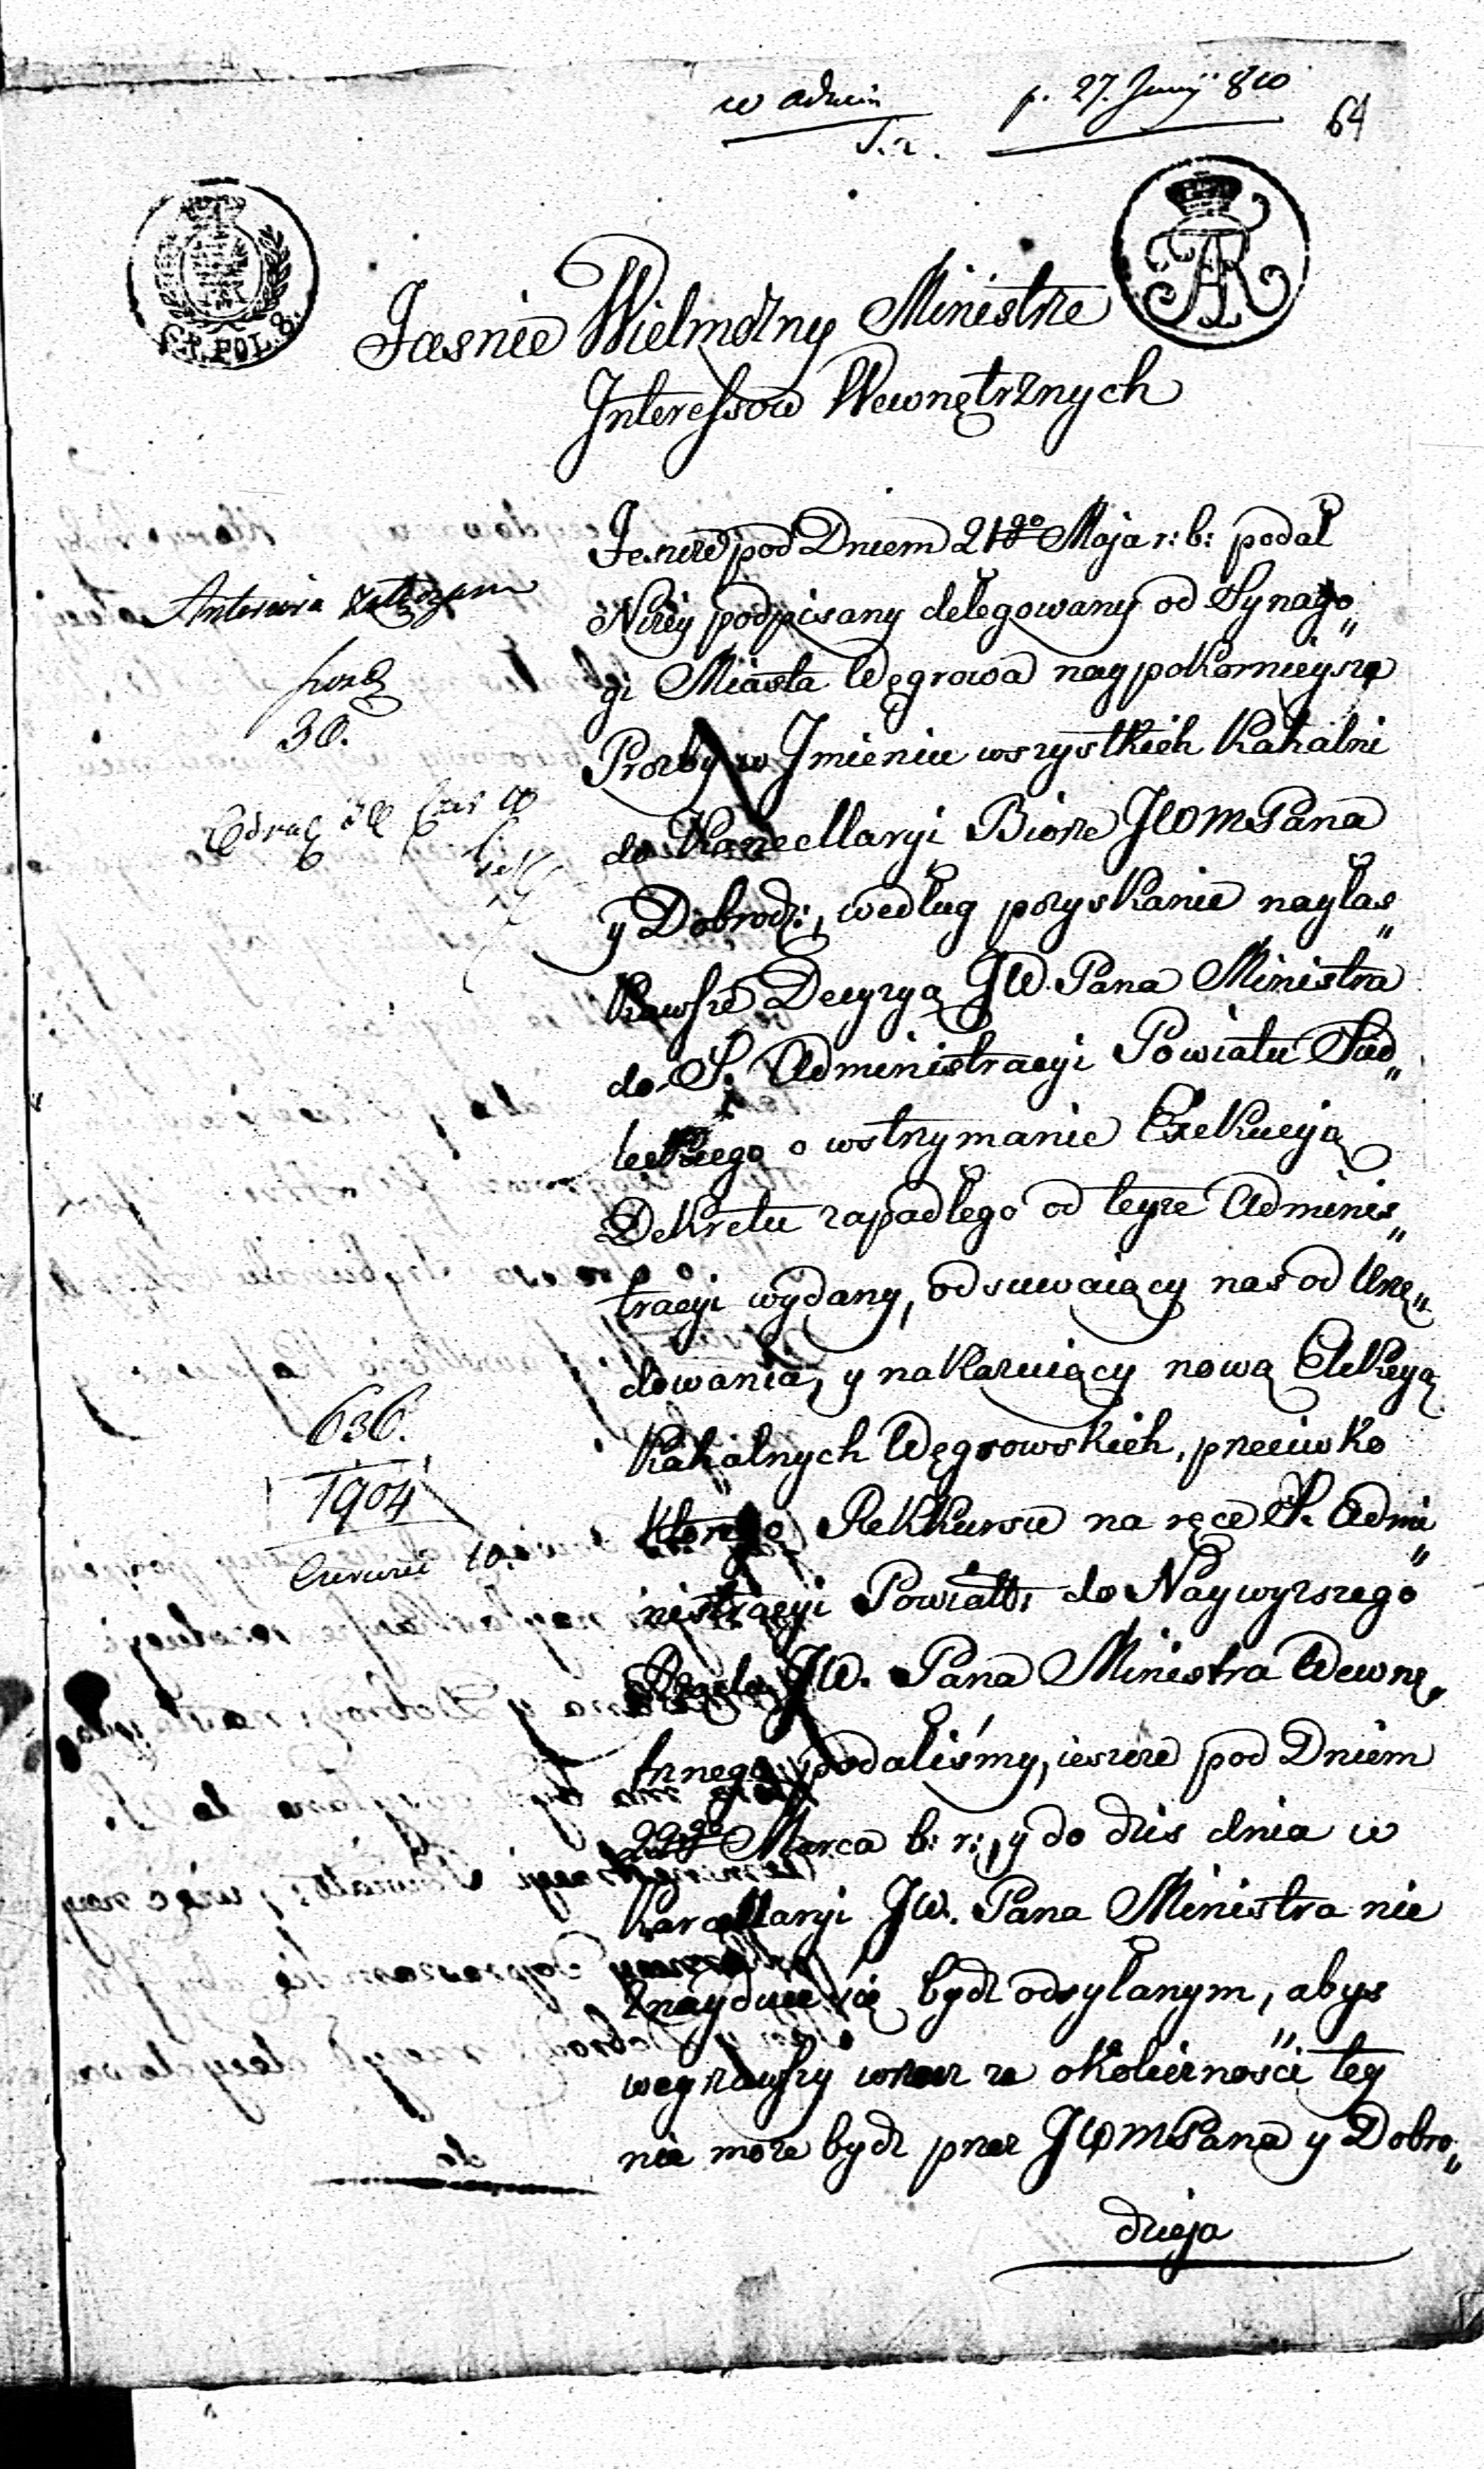 p. 27. Junij 810
64
Jasnie Wielmożny Ministrze
Interessow Wewnętrznych
Jeszcze pod Dniem 21go Maja r: b: podał
Niżey podpisany delegowany od Synago„
gi Miasta Węgrowa naypokornieyszą
Prozby w Jmieniu wszystkich Kahalni
do Kancellaryi Biorze JWMPana
y Dobrodz:, według pozyskanie nayłas„
kawsze Decyzyą JW. Pana Ministra
do P. Administracyi Powiatu Sied„
leckiego o wstrzymanie Exekucyją
Dekretu zapadłego od teyże Adminis„
tracyi wydany, odsuwaiący nas od Urzę„
dowania, y nakazuiący nową Elekcyą
Kahalnych Węgrowskich, przeciwko
ktorego Rekkursu na ręce P. Admi„
nistracyi Powiatt: do Naywyższego
JW. Pana Ministra Wewnę„
trznego, podaliśmy, ieszcze pod Dniem
22go Marca b: r:, y do dzis dnia w
Kancellaryi JW. Pana Ministra nie
znayduie się bydz odsyłanym, abys
weyrzawszy wraz ze okoliczności tey
nie może bydz przez JWMPana y Dobro„
dzieja
30.
636.
1904